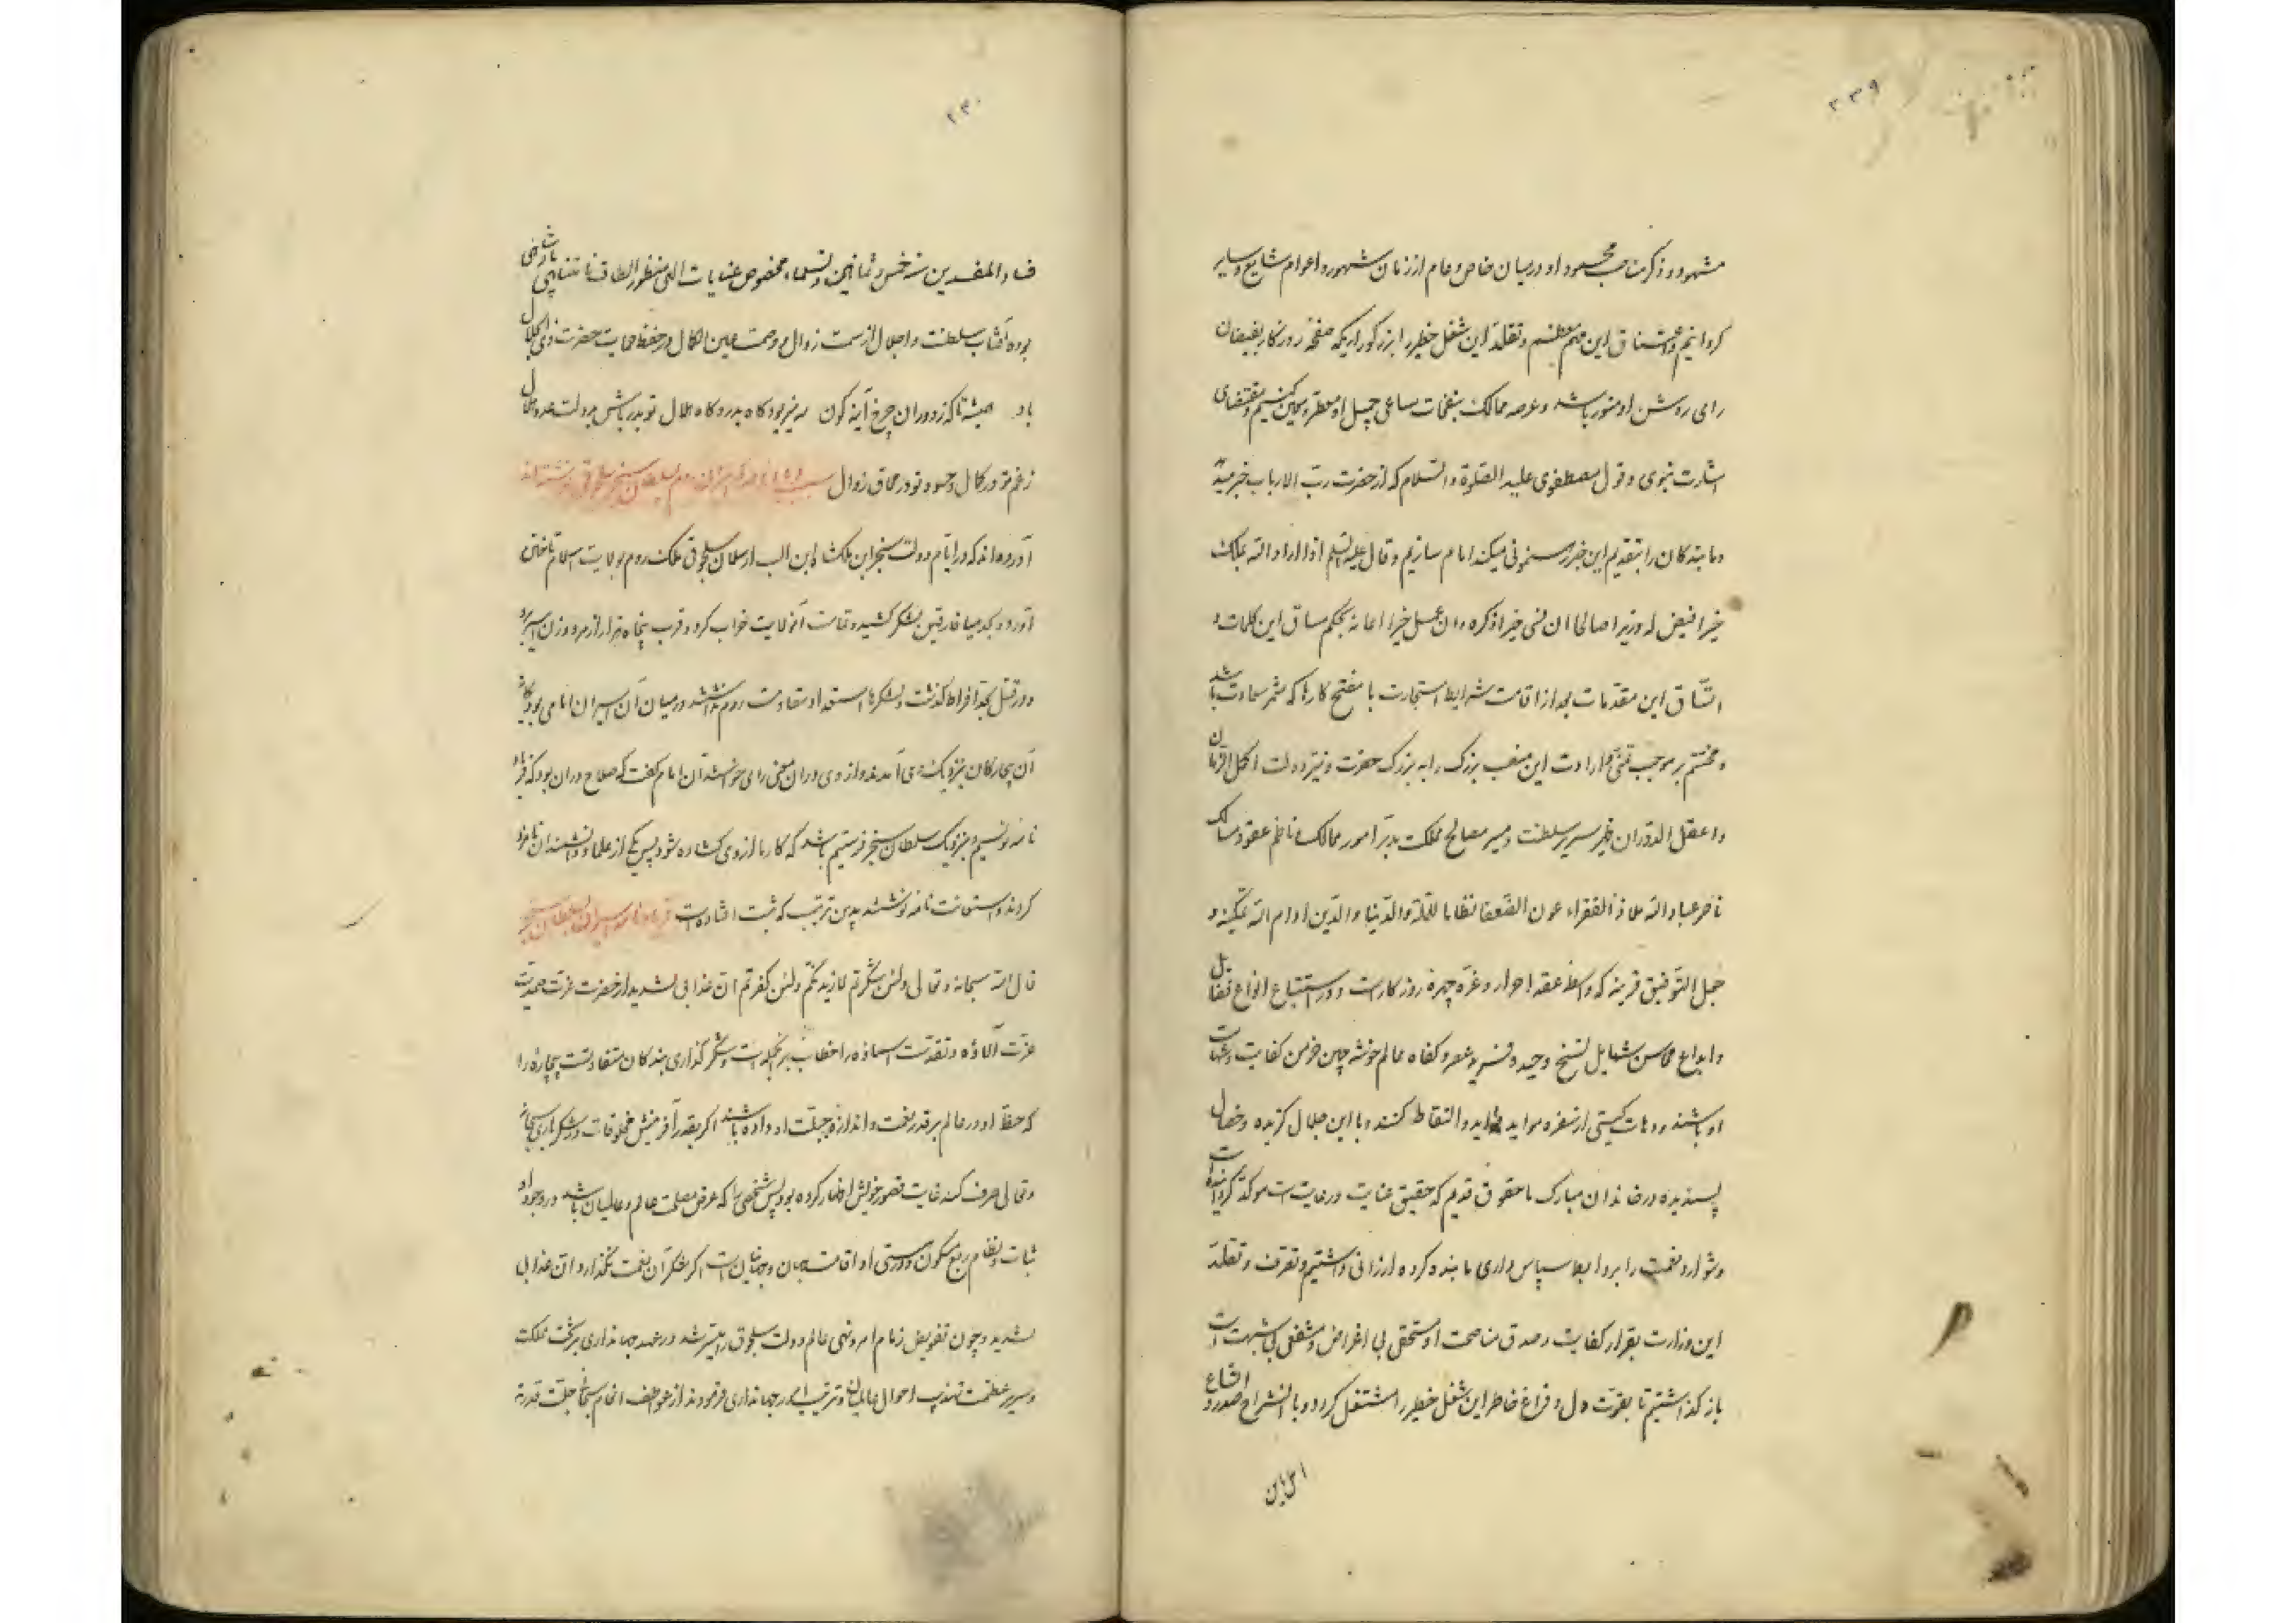 ۲۳۹
مشهود و ذکر مناقب محسود او در میان خاص و عام از زمان شهور و اعوام شایع و سایر
کردانیم و اعتناق این مهم معظم و تقلد این شغل خطیر را بزرکواری که صفحه روزکار بفیضان
رای روشن او منور باشد و عرصه ممالک بنفحات مساعی جمیل او معطر و تعیین کنیم و بمقتضای
اشارت نبوی و قول مصطفوی علیه الصلوة و السلام که از حضرت رب الارباب خبر میدهد
و ما بندکان را بتقدیم این خبر رهنمونی میکند امام سازیم و قال علیه السلم اذا اراد الله بملک
خیرا قیض له وزیرا صالحا ان نسی خیرا ذکره و ان عمل خیرا اعانه بحکم مساق این کلمات و
اتساق این مقدمات بعد از اقامت شرایط استجارت با مفتح کارها که مثمر سعادت باشد
و مختتم بر موجب تمنی و ارادت این منصب بزرک را به بزرک حضرت و وزیر دولت اکمل الزمان
و اعقل الدوران ظهیر سریر سلطنت و میسر مصالح مملکت مدبر امور ممالک ناظم عقود مسالک
ناصر عباد الله ملاذ الفقراء عون الضعفا نظاما للملة والدنیا والدین ادام الله تمکینه و
جعل التوفیق قرینه که واسطه عقد احرار و غره چهره روزکارست و در استتباع انواع فضایل
و ابداع محاسن شمایل نسخ وحید و فرید عصر و کفاه عالم خوشه چین خرمن کفایت و شهامت
او باشند و دهات کیتی از سفره مواید فواید او التقاط کنند و با این جلال کزیده و خصال
پسندیده در خاندان مبارک ما حقوق قدیم که حقیق عنایت و رعایت است موکد کردانیده است
و شوارد نعمت را بروابط سپاس داری ما بنده کرده ارزانی داشتیم و تعرف و تقلد
این وزارت بقرار کفایت و صدق مناصحت او مستحقی بی اغراض و مشفقی بی شبهت است
باز کذاشتیم تا بقوت دل و فراغ خاطر این شغل خطیر را مشتغل کردد و با انشراح صدور و اقناع
۲۴۰
فساد المفسدین سنه خمس و ثمانین و تسعماء مخصوص عنایات الهی منظور الطاف نامتناهی پادشاهی
بوده آفتاب سلطنت و اجلال از سمت زوال و وصمت عین الکمال در حفظ حمایت حضرت ذی الجلال
باد همیشه تا که ز دوران چرخ آینه کون نه بود کاه بدر و کاه هلال تو بدر باش بدولت عدو هلال
زغم تو در کمال و حسود تو در محاق زوال سبب نامه اسیران روم بسلطان سنجر سلجوقی نوشته اند
آورده اند که در ایام دولت سنجر ابن ملکشاه ابن الب ارسلان سلجوقی ملک روم بولایت اسلام تاختن
آورد و بحد میافارقین لشکر کشید و تمامت آن ولایت خراب کرد و قرب پنجاه هزار از مرد و زن اسیر برد
و در قتل بحد افراط کذشت و لشکرها استعداد مقاومت روم نداشتند در میان آن اسیران امامی بود کامل
آن بیچارکان بنزدیک وی آمدند و از وی در آن معنی رای خواستند آن امام کفت که صلاح در آن بود که فریاد
نامه نویسیم و بنزدیک سلطان سنجر فرستیم باشد که کار ما از وی کشاده شود پس یکی از علما و دانشمندان نامزد
کردند و استعانت نامه نوشتند بدین ترتیب که ثبت افتاده است فریادنامه اسیران بسلطان سنجر
قال الله سبحانه و تعالی ولئن شکرتم لازیدنکم ولئن کفرتم ان عذابی لشدید از حضرت عزت صمدیت
عزت آلاؤه و تقدست اسماؤه خطاب برین جمله است و شکر کذاری بندکان متفاوتست بیچاره را
که حظ او در عالم بر قدر نعمت و اندازه جبلت او داده باشند اکر بقدر آفرینش مخلوقات در شکر باری سبحانه
و تعالی صرف کند غایت قصور خویش اظهار کرده بود پس شخصی را که عرض مصلحت عالم و عالمیان باشد در وجود او
ثبات و نظام ربع مسکون و درستی او اقامت جهان و جهانیان است اکر شکر آن نعمت نکذارد ان عذابی
لشدید و چون تفویض زمام امر و نهی عالم دولت سلجوق را میسر شد در عهد جهانداری بر تخت مملکت
و سریر عظمت تهذیب احوال عالمیان و ترتیب امور جهانداری فرمودند از عواطف انعام سبحانه جلت قدرته